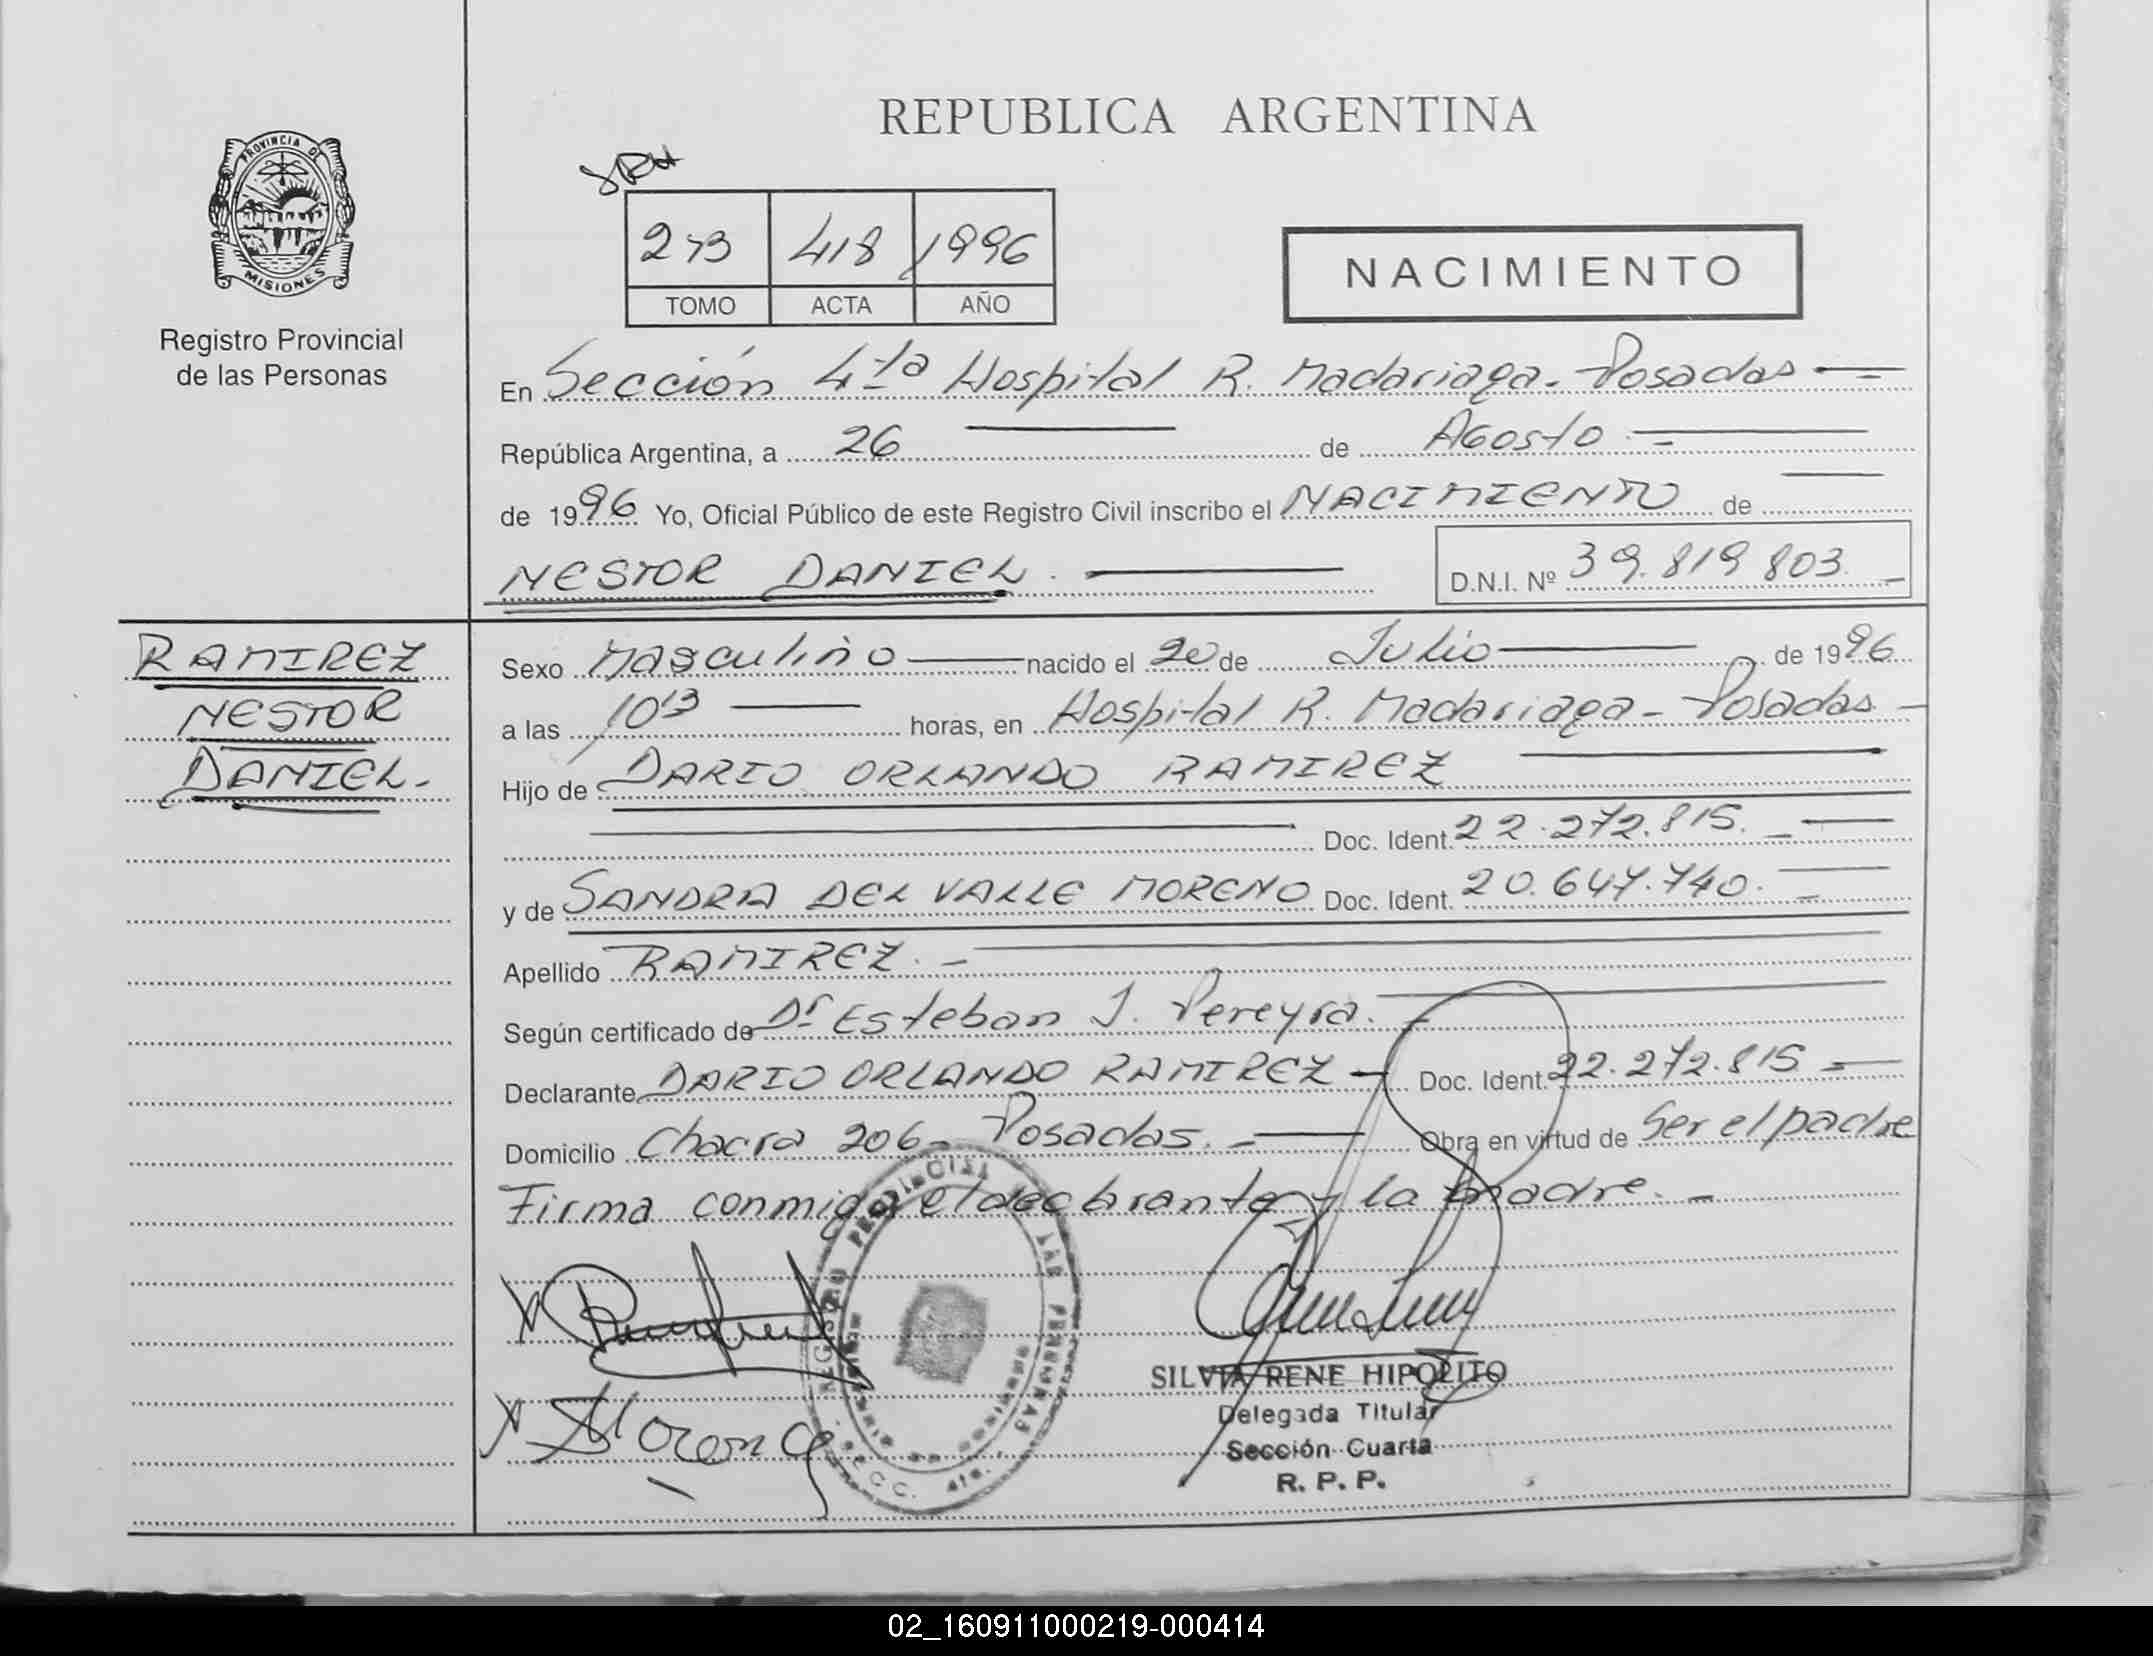 REPUBLICA ARGENTINA
PROVINCIA DE
MISIONES
Registro Provincial
de las Personas
SRH
273 418 1996
TOMO ACTA AÑO
NACIMIENTO
En Sección 4ta Hospital R. Madariaga - Posadas
República Argentina, a 26 de Agosto
de 1996 Yo, Oficial Público de este Registro Civil inscribo el NACIMIENTO de
NESTOR DANIEL. D.N.I. Nº 39.819.803.
RAMIREZ
NESTOR
DANIEL.
Sexo Masculino nacido el 20 de Julio de 1996
a las 10'13 horas, en Hospital R. Madariaga - Posadas
Hijo de DARIO ORLANDO RAMIREZ
Doc. Ident. 22.272.815.
y de SANDRA DEL VALLE MORENO Doc. Ident. 20.647.740.
Apellido RAMIREZ.
Según certificado de Dr Esteban J. Pereyra.
Declarante DARIO ORLANDO RAMIREZ Doc. Ident. 22.272.815
Domicilio Chacra 206 - Posadas. Obra en virtud de Ser el padre
Firma conmigo el declarante y la madre.
SILVIA RENE HIPOLITO
Delegada Titular
Sección Cuarta
R. P. P.
02_160911000219-000414